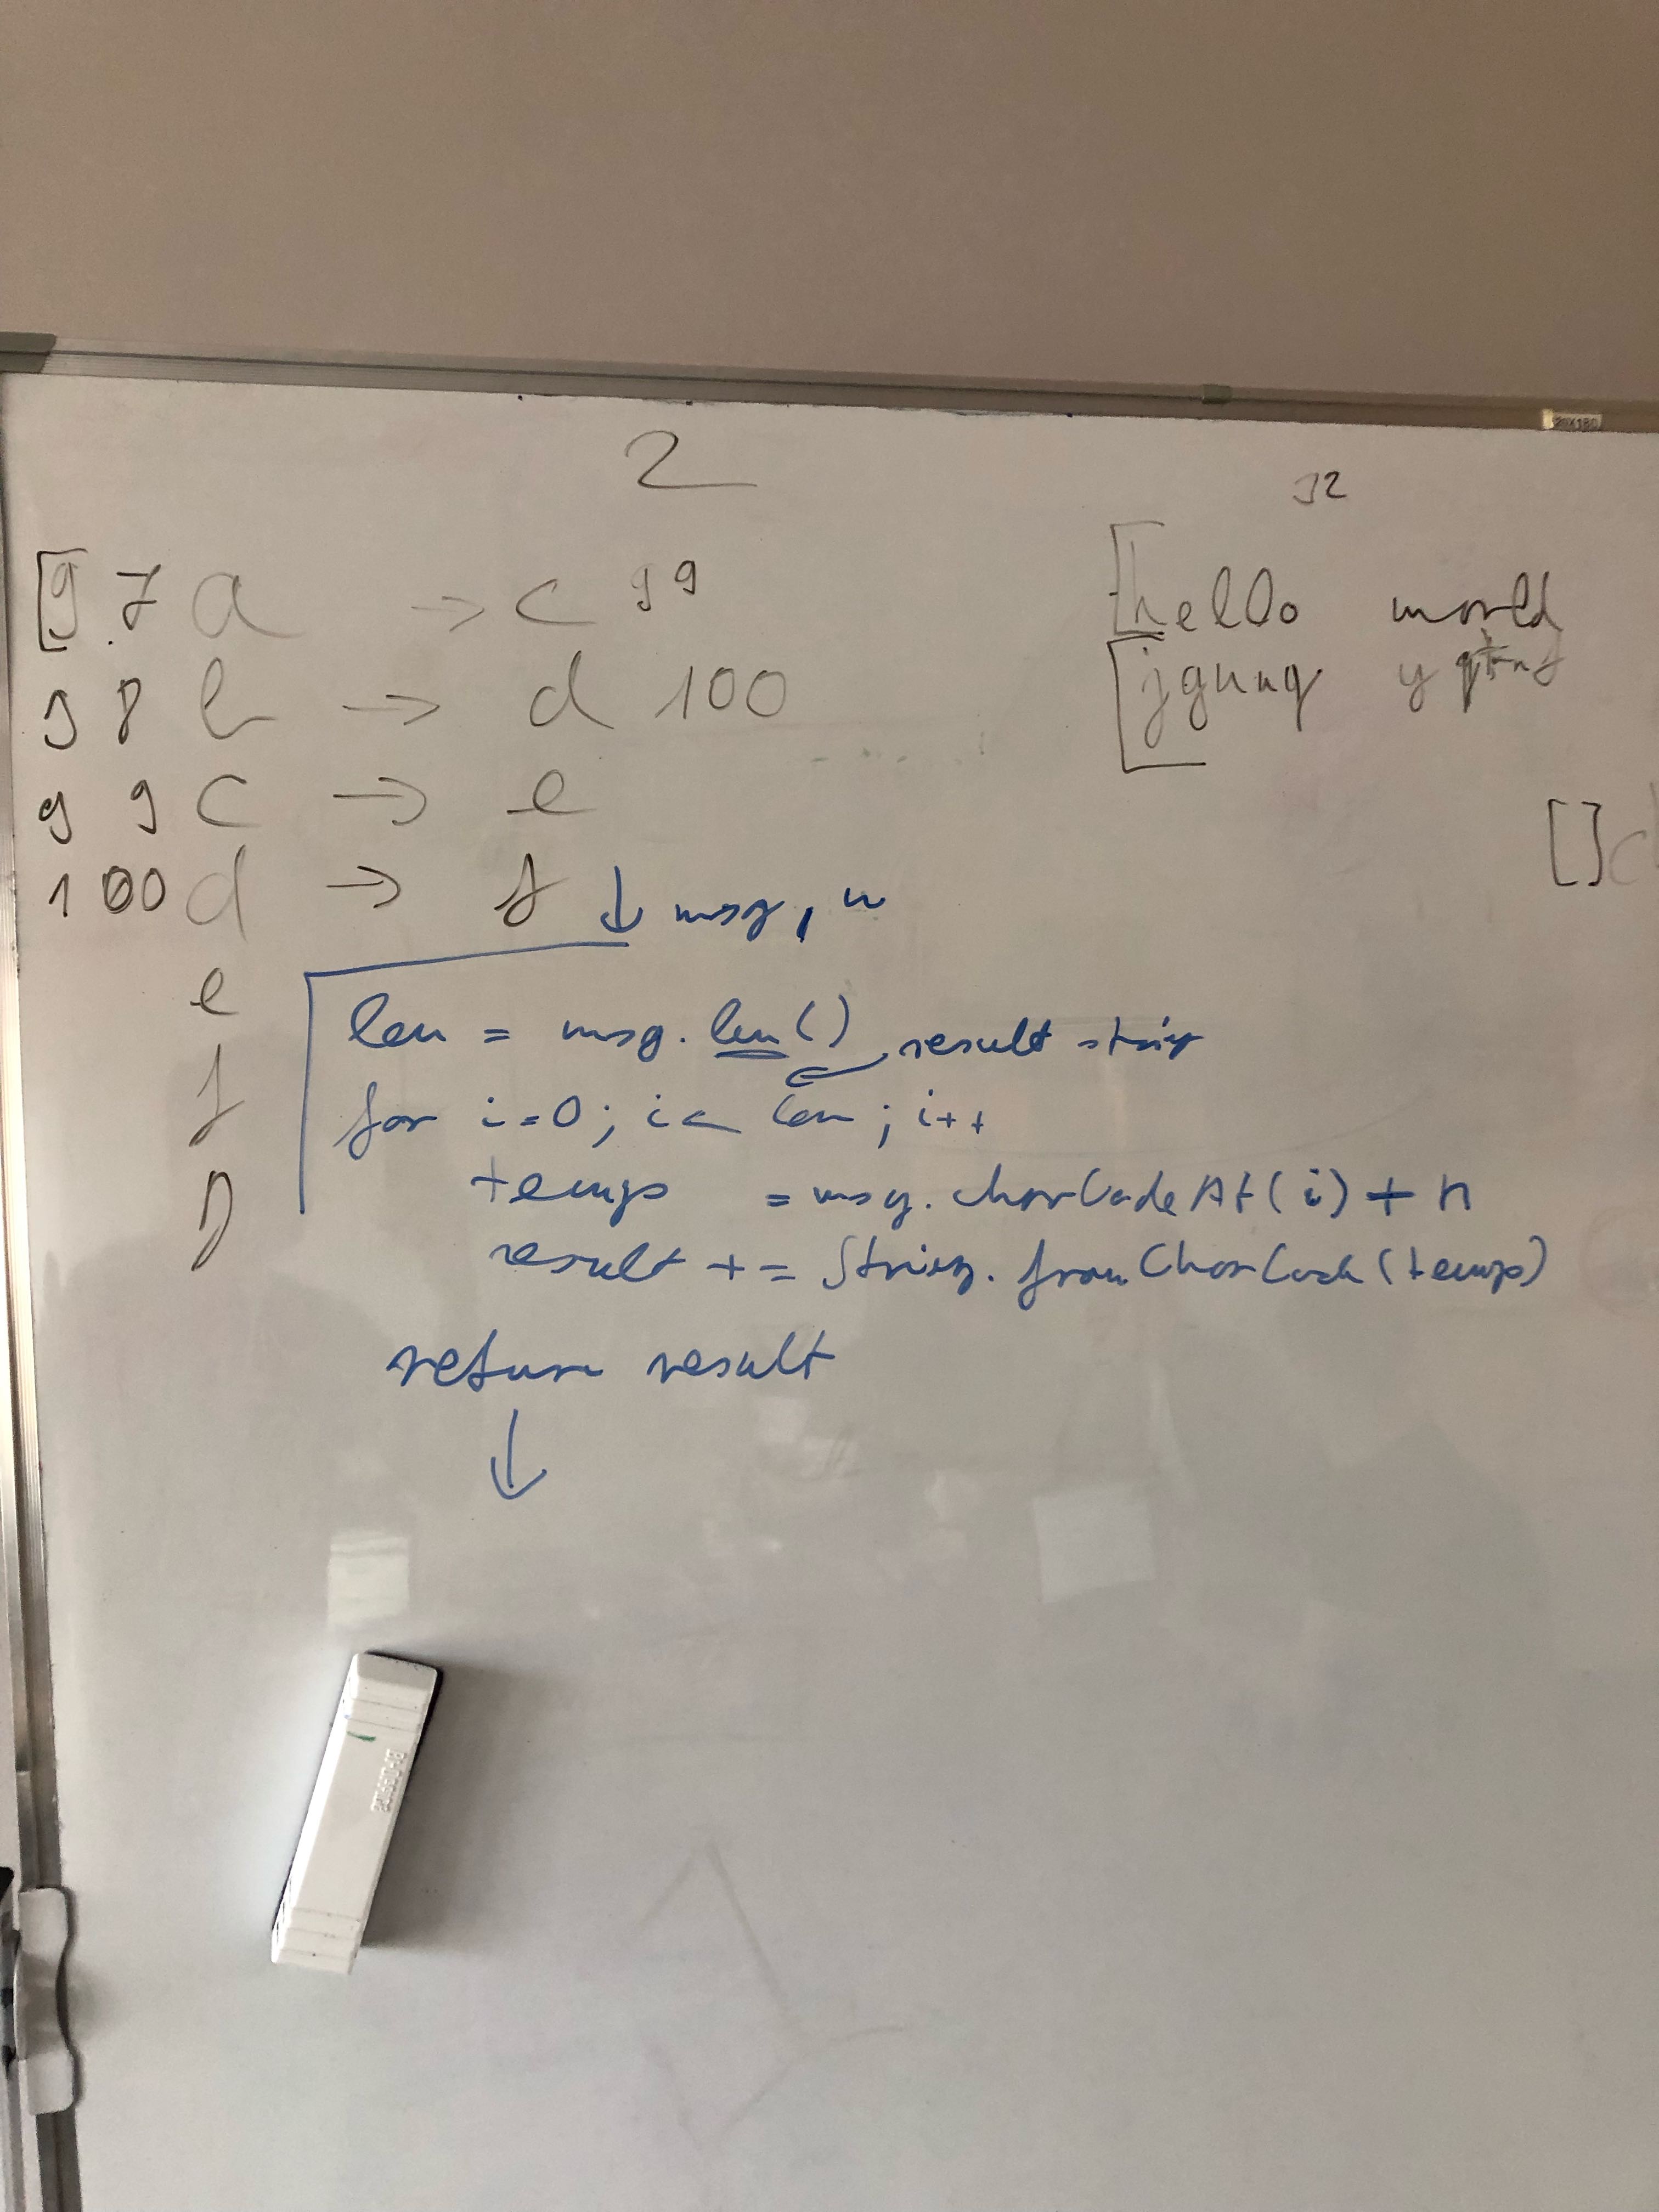 2
32
[97 a → c 99
98 b → d 100
99 c → e
100 d → f
e
f
[hello world
[jgnnq
[]c
↓ msg, n
len = msg.len()
result string
for i=0; i< len; i++
temp = msg.charCodeAt(i) + n
result += String.fromCharCode(temp)
return result
↓